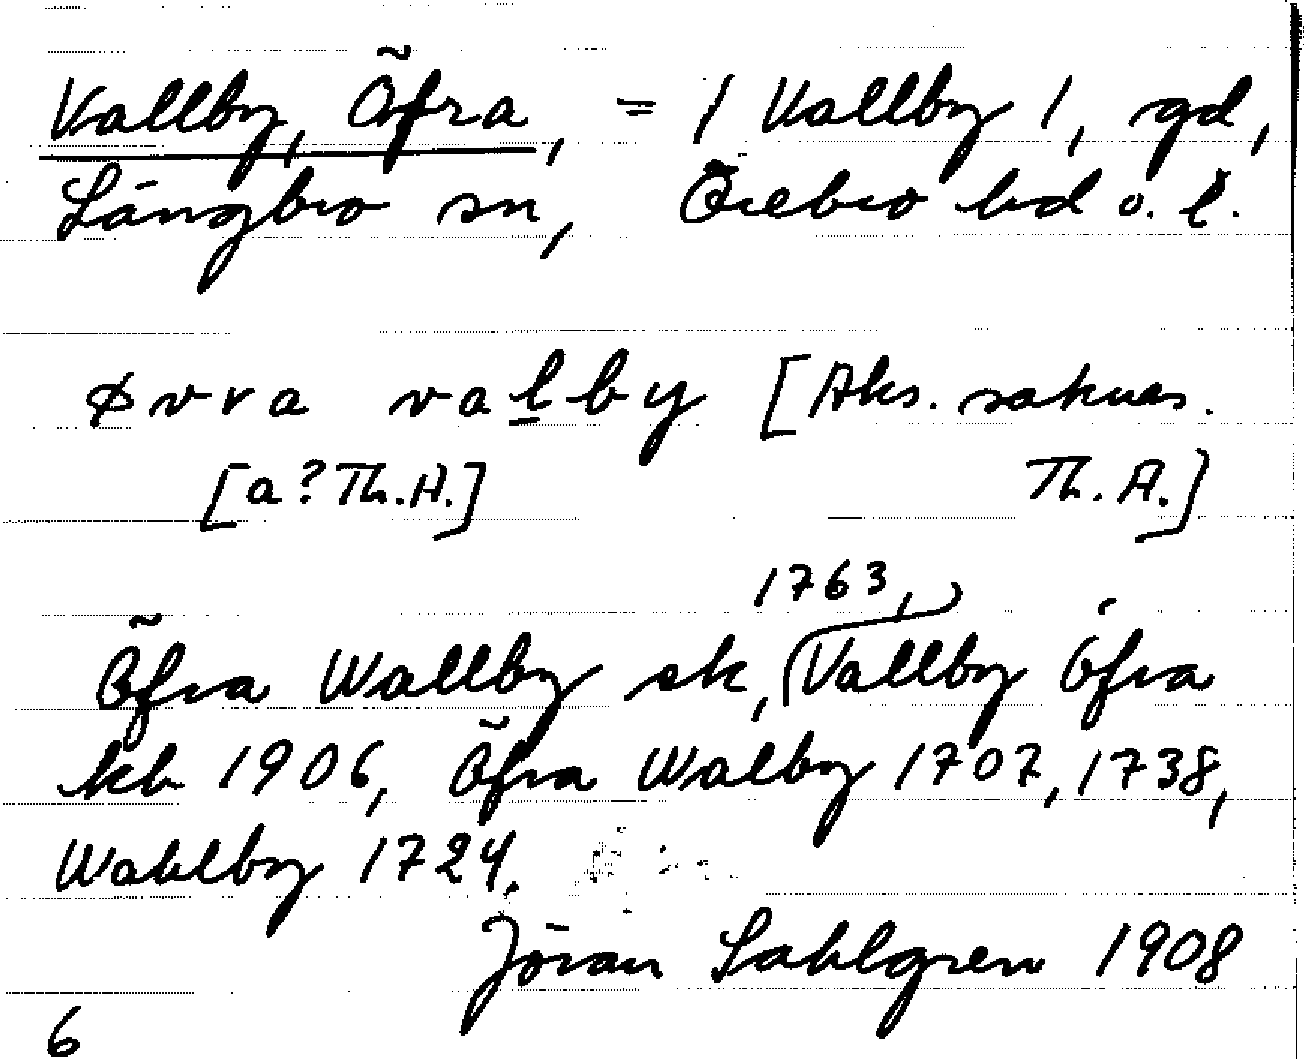 Vallby, Öfra, = / Vallby 1, gd,
Längbro sn, Örebro hd o. l.
øvra valby [Aks. saknas.
[a? Th.A.] Th. A.]
1763,
Öfra Wallby sk, Vallby Öfra
kb 1906, Öfra Walby 1707, 1738,
Wahlby 1724.
Jöran Sahlgren 1908
6